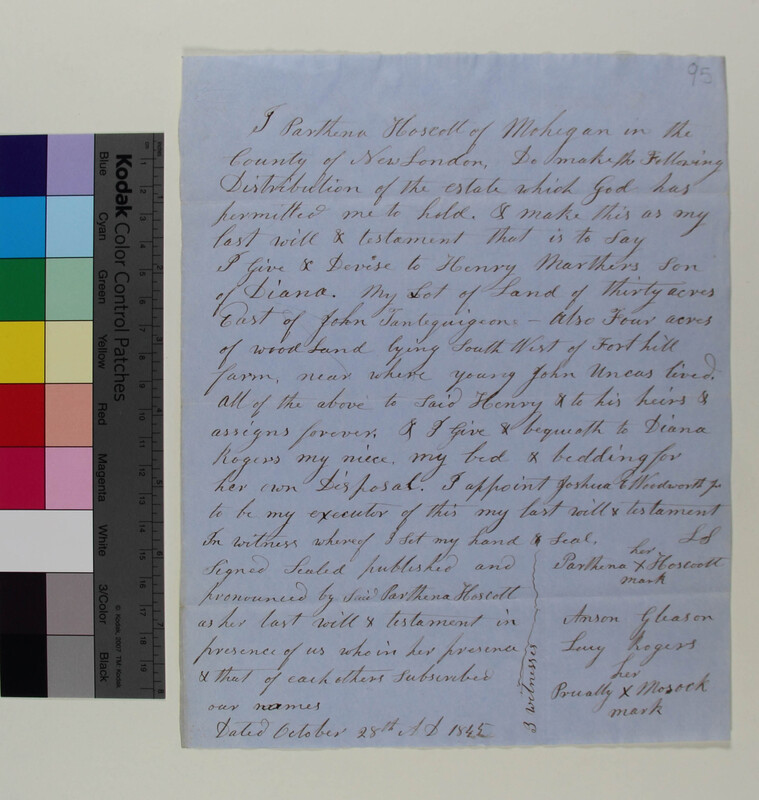 95
I Parthena Hoscott of Mohegan in the
County of New London, Do make the Following
Distribution of the estate which God has
permitted me to hold. & make this as my
last will & testament that is to Say
I Give & Devise to Henry Marthers Son
of Diana. My Lot of Land of thirty acres
East of John Tantequigeone – Also Four acres
of wood Land lying South West of Fort hill
farm, near where young John Uncas lived.
All of the above to Said Henry & to his heirs &
assigns forever. & I Give & bequeath to Diana
Rogers my niece, my bed & bedding for
her own Disposal. I appoint Joshua E Woodworth Jr
to be my executor of this my last will & testament
In witness whereof I set my hand & Seal. LS
Signed Sealed published and
pronounced by Said Parthena Hoscott
as her last will & testament in
presence of us who in her presence
& that of each others Subscribed
our names
Dated October 28th AD 1845
her
Parthena X Hoscott
mark
3 witnesses
Anson Gleason
Lucy Rogers
her
X Mosock
mark
Kodak Color Control Patches
Blue
Cyan
Green
Yellow
Red
Magenta
White
3/Color
Black
© Kodak, 2007 TM: Kodak
cm
1
2
3
4
5
6
7
8
9
10
11
12
13
14
15
16
17
18
19